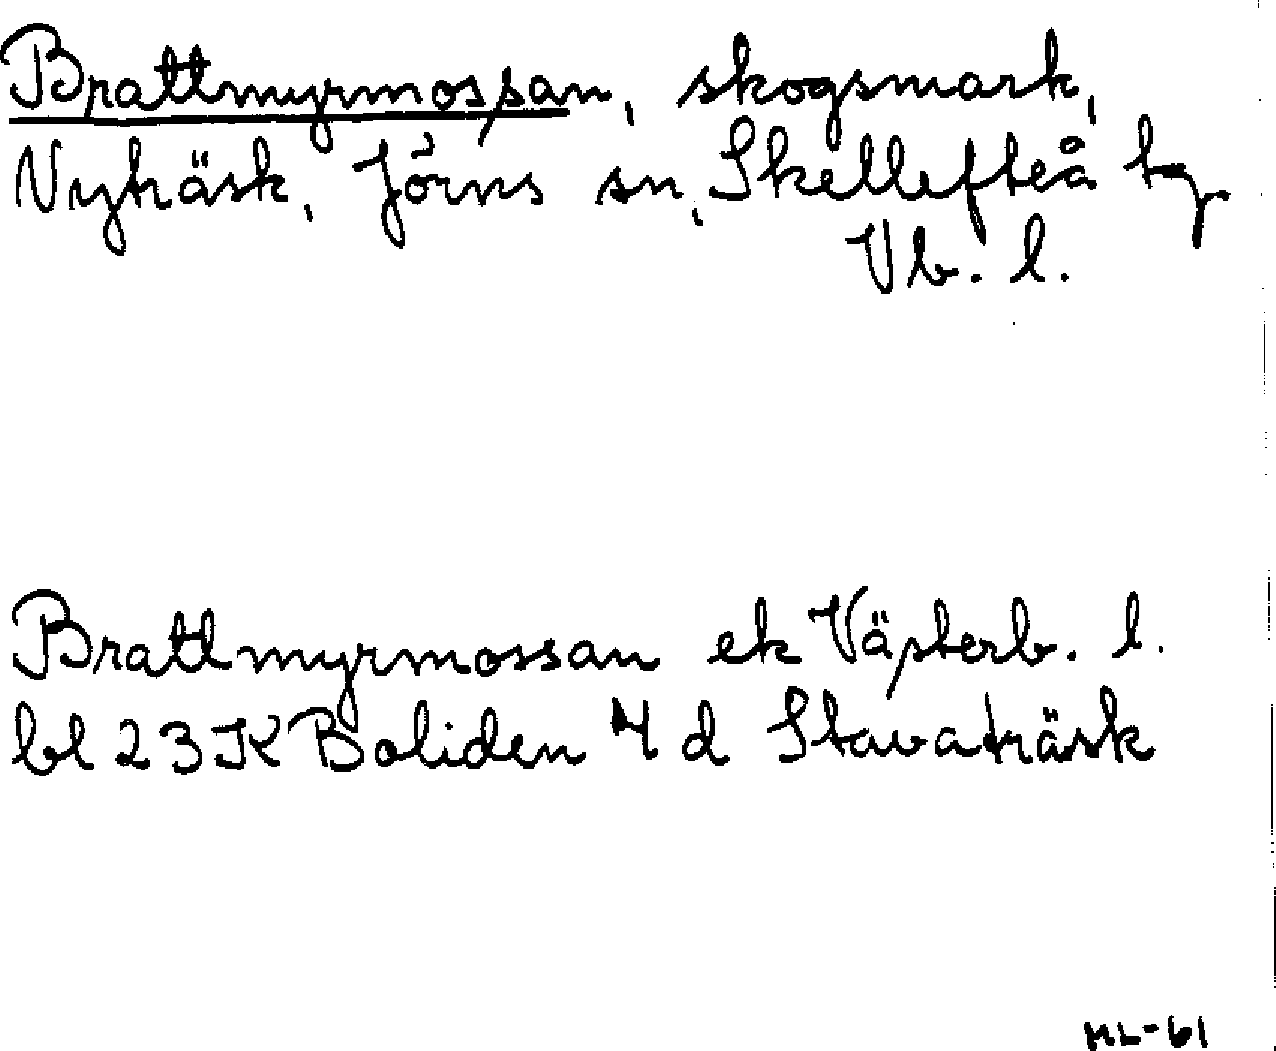 Brattmyrmossan, skogsmark,
Nyträsk, Jörns sn, Skellefteå tg
Vb. l.
Brattmyrmossan ek Västerb. l.
bl 23K Boliden 4 d Stavaträsk
ML-61